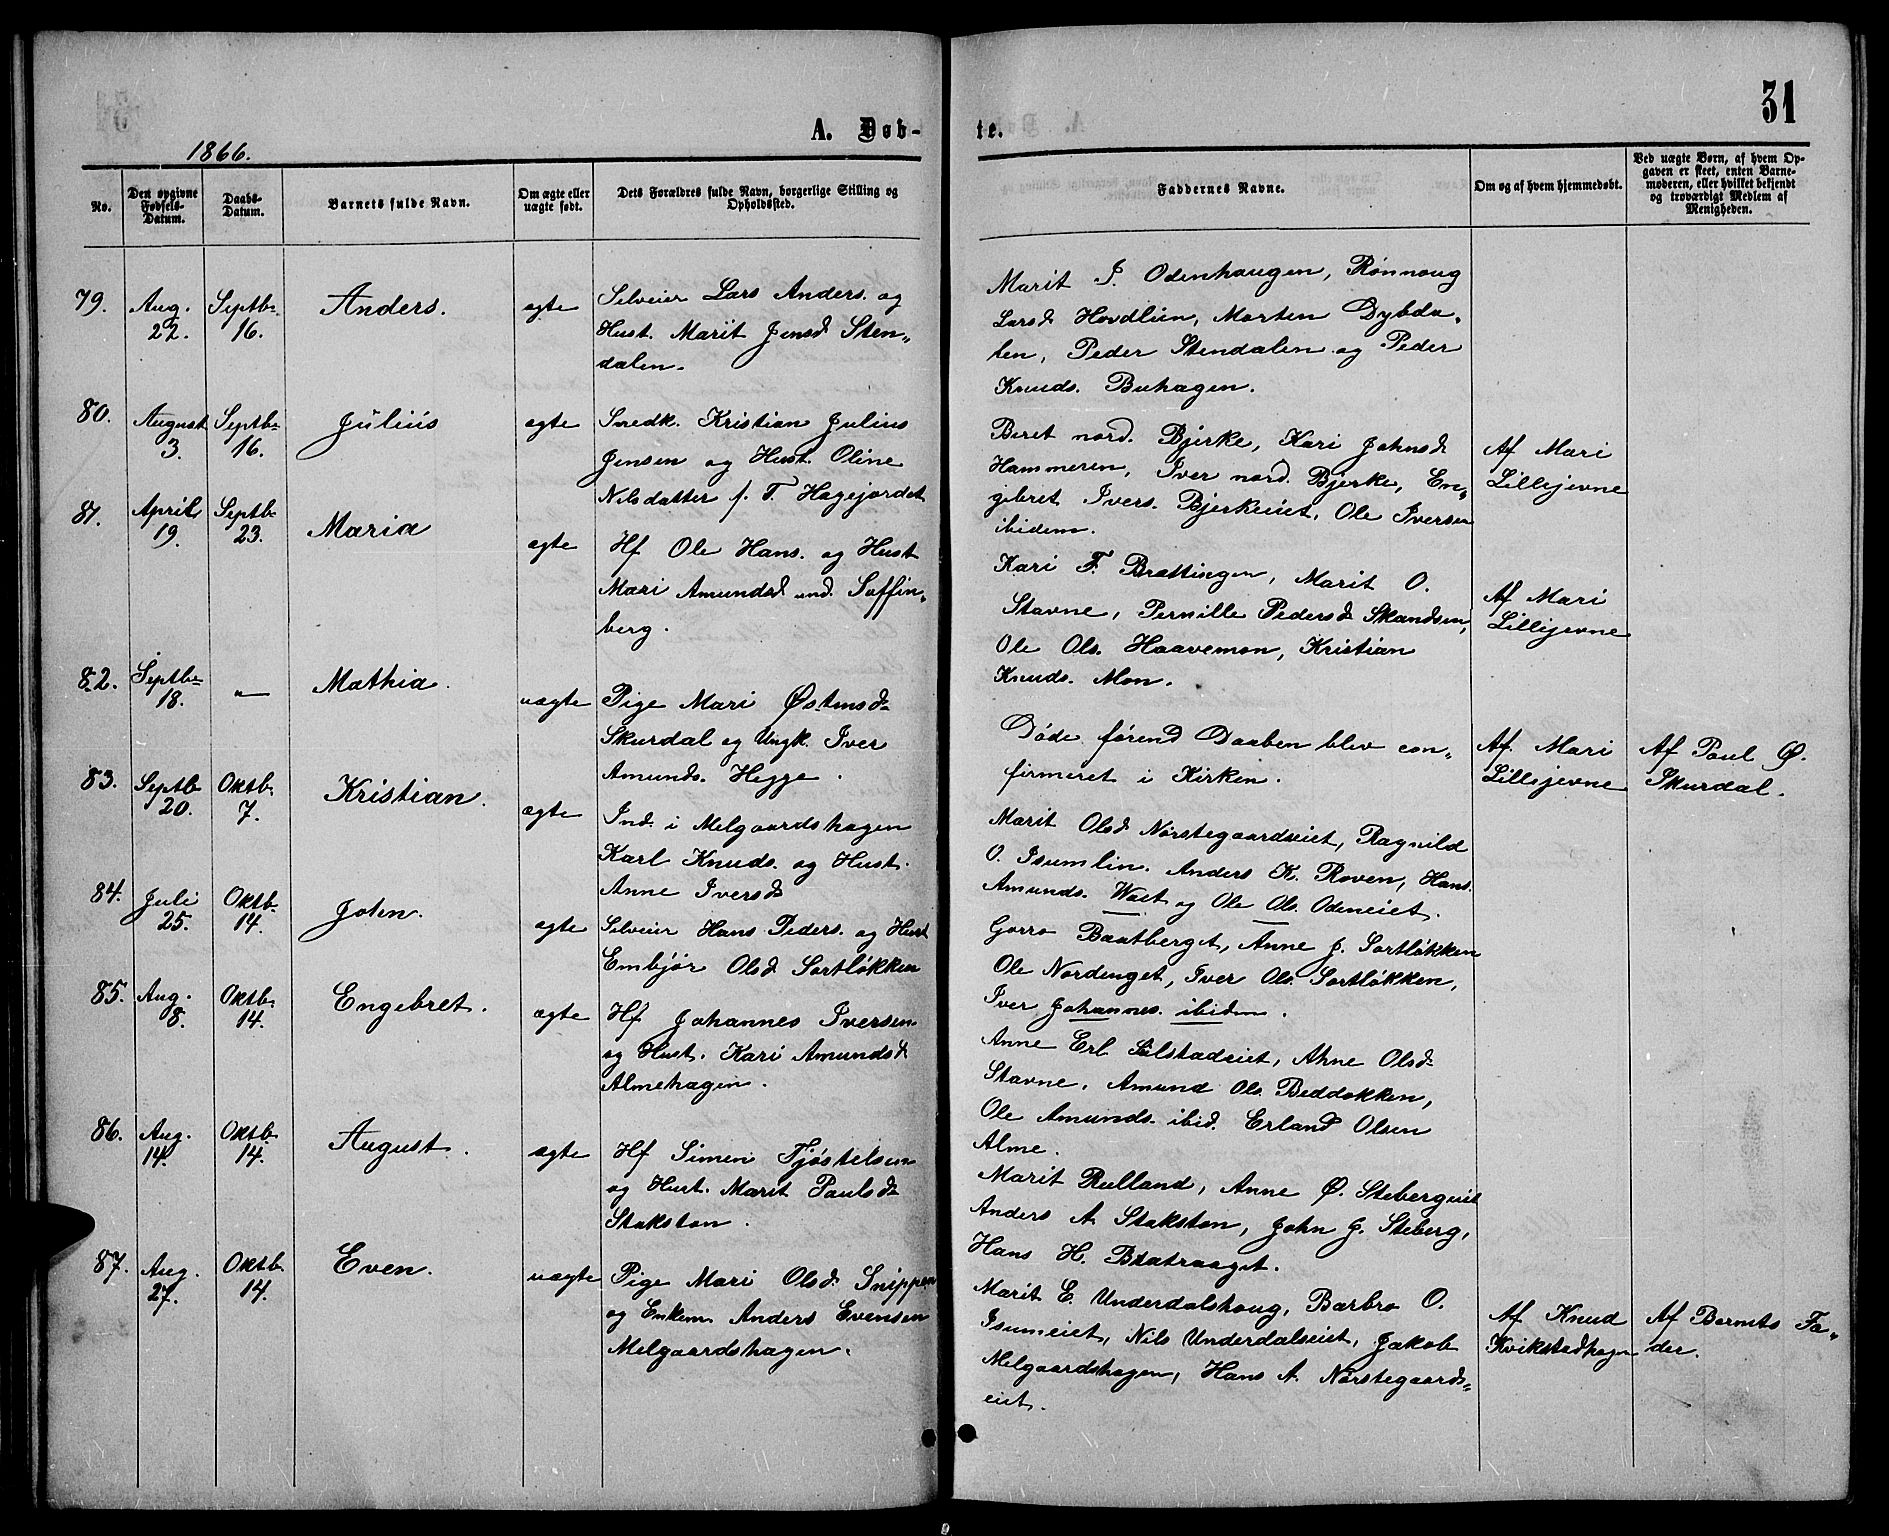 31
A. Døb-
te.
1866.
No.
Den opgivne Fødsels-Datum.
Daabs-Datum.
Barnets fulde Navn.
Om ægte eller uægte født.
Dets Forældres fulde Navn, borgerlige Stilling og Opholdssted.
Faddernes Navne.
Om og af hvem hjemmedøbt.
Ved uægte Børn, af hvem Opgaven er skeet, enten Barnemoderen, eller hvilket bekjendt og troværdigt Medlem af Menigheden.
79. Aug. 22. Septbr. 16. Anders. ægte
Selveier Lars Anders. og
Hust. Marit Jensd Sten„
dalen.
Marit P. Odenhaugen, Rønnoug
Larsd Hovdlien, Morten Dybda„
len, Peder Stendalen og Peder
Knuds. Buhagen.
80. August 3. Septbr 16. Julius ægte
Snedk. Kristian Julius
Jensen og Hust. Oline
Nilsdatter f. T. Hagejordet
Beret nord. Bjerke, Kari Johnsd
Hammeren, Iver nord. Bjerke, En„
gebret Ivers. Bjerkeeiet, Ole Iversen
ibidem.
Af Mari
Lillejevne
81. April 19. Septbr 23. Maria ægte
Hf Ole Hans. og Hust
Mari Amundsd und. Soffin„
berg.
Kari F. Brattingen, Marit O.
Stavne, Pernille Pedersd Skandsen,
Ole Ols. Haavemon, Kristian
Knuds. Mon.
Af Mari
Lillejevne
82. Septbr 18. „ Mathia. uægte
Pige Mari Østensd
Skurdal og Ungk. Iver
Amunds. Hegge.
Døde førend Daaben blev con„
firmeret i Kirken.
Af Mari
Lillejevne
Af Paul Ø.
Skurdal.
83. Septb 20. Oktbr. 7. Kristian. ægte
Ind. i Melgaardshagen
Karl Knuds. og Hust.
Anne Iversd
Marit Olsd Nørstegaardseiet, Ragnild
O. Isumlin. Anders K. Roven, Hans
Amunds. Wait og Ole Ols. Odeneiet.
84. Juli 25. Oktb. 14. John. ægte
Selveier Hans Peders. og Hust
Embjør Olsd Sortløkken
Gorro Baatberget, Anne J. Sortløkken
Ole Nordenget, Iver Ols. Sortløkken,
Iver Johannes. ibidem.
85. Aug. 8. Oktbr. 14. Engebret. ægte
Hf Johannes Iversen
og Hust. Kari Amundsd
Almehagen.
Anne Erl. Lilstadeiet, Anne Olsd
Stavne, Amund Ols. Beddokken,
Ole Amunds. ibid. Erland Olsen
Alme.
86. Aug. 14. Oktb 14. August. ægte
Hf Simen Tjøstelsen
og Hust. Marit Paulsd
Stakston.
Marit Rulland, Anne Ø. Stebergeiet
Anders A. Stakston, John J. Steberg,
Hans H. Bratraaget.
87. Aug. 27. Oktb 14. Even. uægte
Pige Mari Olsd. Snippen
og Enkem Anders Evensen
Melgaardshagen.
Marit E. Underdalshoug, Barbro O.
Isumeiet, Nils Underdalseiet, Jakob
Melgaardshagen, Hans A. Nørstegaards„
eiet.
Af Knud
Kvikstadhagen
Af Barnets Fa„
der.